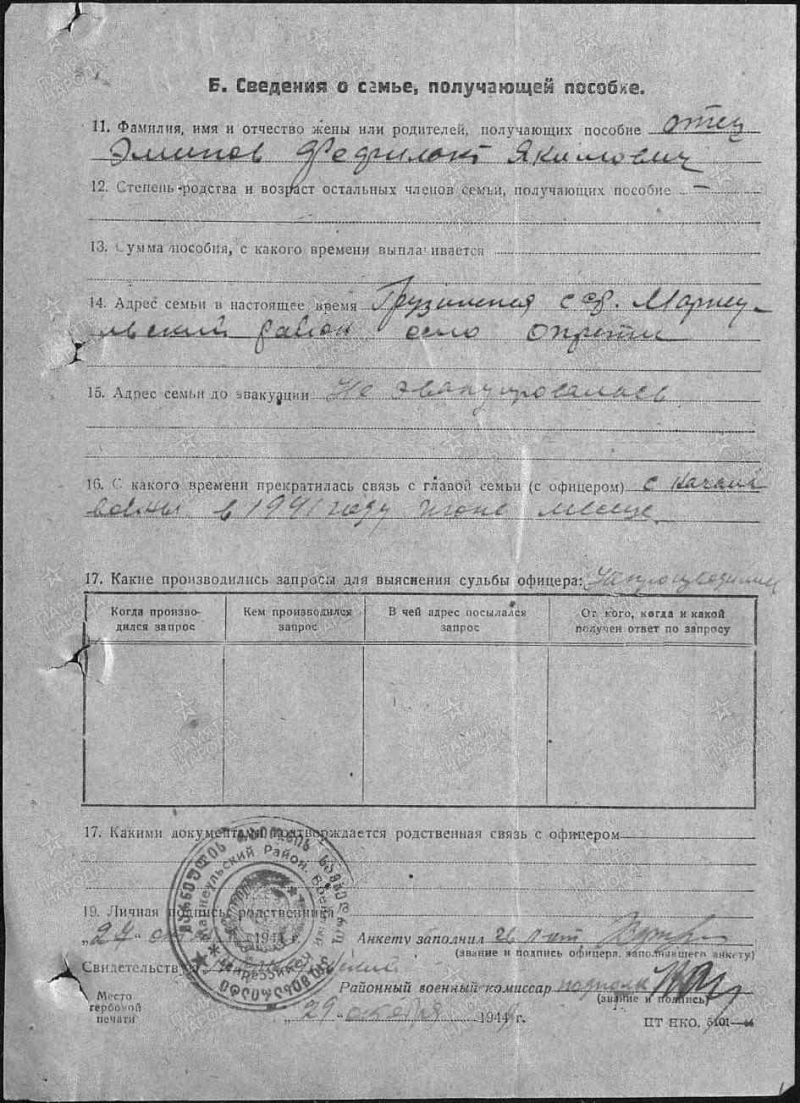 Б. Сведения о семье, получающей пособие.
11. Фамилия, имя и отчество жены или родителей, получающих пособие отец
Эминов Якимович
12. Степень родства и возраст остальных членов семьи, получающих пособие —
13. Сумма пособия, с какого времени выплачивается
14. Адрес семьи в настоящее время Грузинская сср. Марнеу-
льский район село Опрети
15. Адрес семьи до эвакуации Не эвакуировалась
16. С какого времени прекратилась связь с главой семьи (с офицером) с начала
войны в 1941 году июне месяце
17. Какие производились запросы для выяснения судьбы офицера:
Когда произво-
дился запрос
Кем производился
запрос
В чей адрес посылался
запрос
От кого, когда и какой
получен ответ по запросу
17. Какими документами подтверждается родственная связь с офицером
19. Личная подпись родственника
„29“ 194 г. Анкету заполнил
(звание и подпись офицера, заполнявшего анкету)
Свидетельствую
Районный военный комиссар
(звание и подпись)
Место
гербовой
печати
„29“ октября 1944 г.
ЦТ НКО. 5101—44
Марнеульский Район. Воен